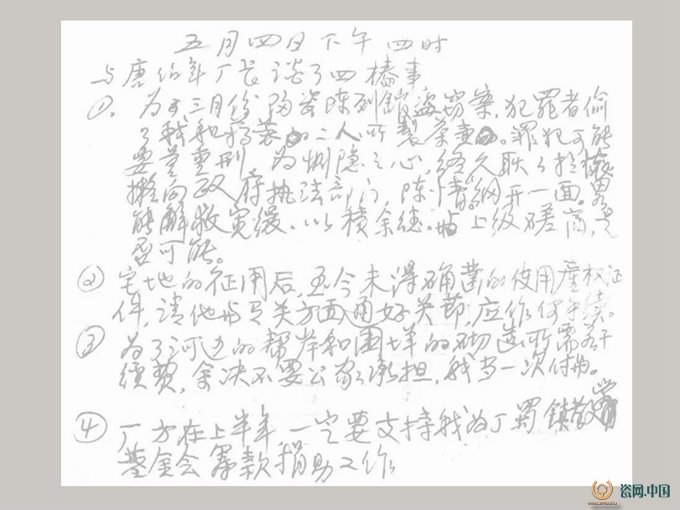 五月四日下午四时
与唐伯年厂长谈了四椿事
①. 为了三月份陶瓷陈列馆盗窃案，犯罪者偷
了我和蒋蓉的二人所制茶壶。罪犯可能
要量重刑，为恻隐之心，终久耿于怀
拟向政府执法部门，陈情网开一面
能解救宽缓，以积余德。与上级磋商，是
否可能。
② 宅地的征用后，至今未得确凿的使用产权证
件，请他与有关方面通好关节，应作何手续。
③ 为了河边的帮岸和围垟的砌造所需若干
经费，余决不要公家承担，我当一次付出。
④ 厂方在上半年一定要支持我为丁蜀镇教育
基金会筹款捐助工作
瓷网.中国